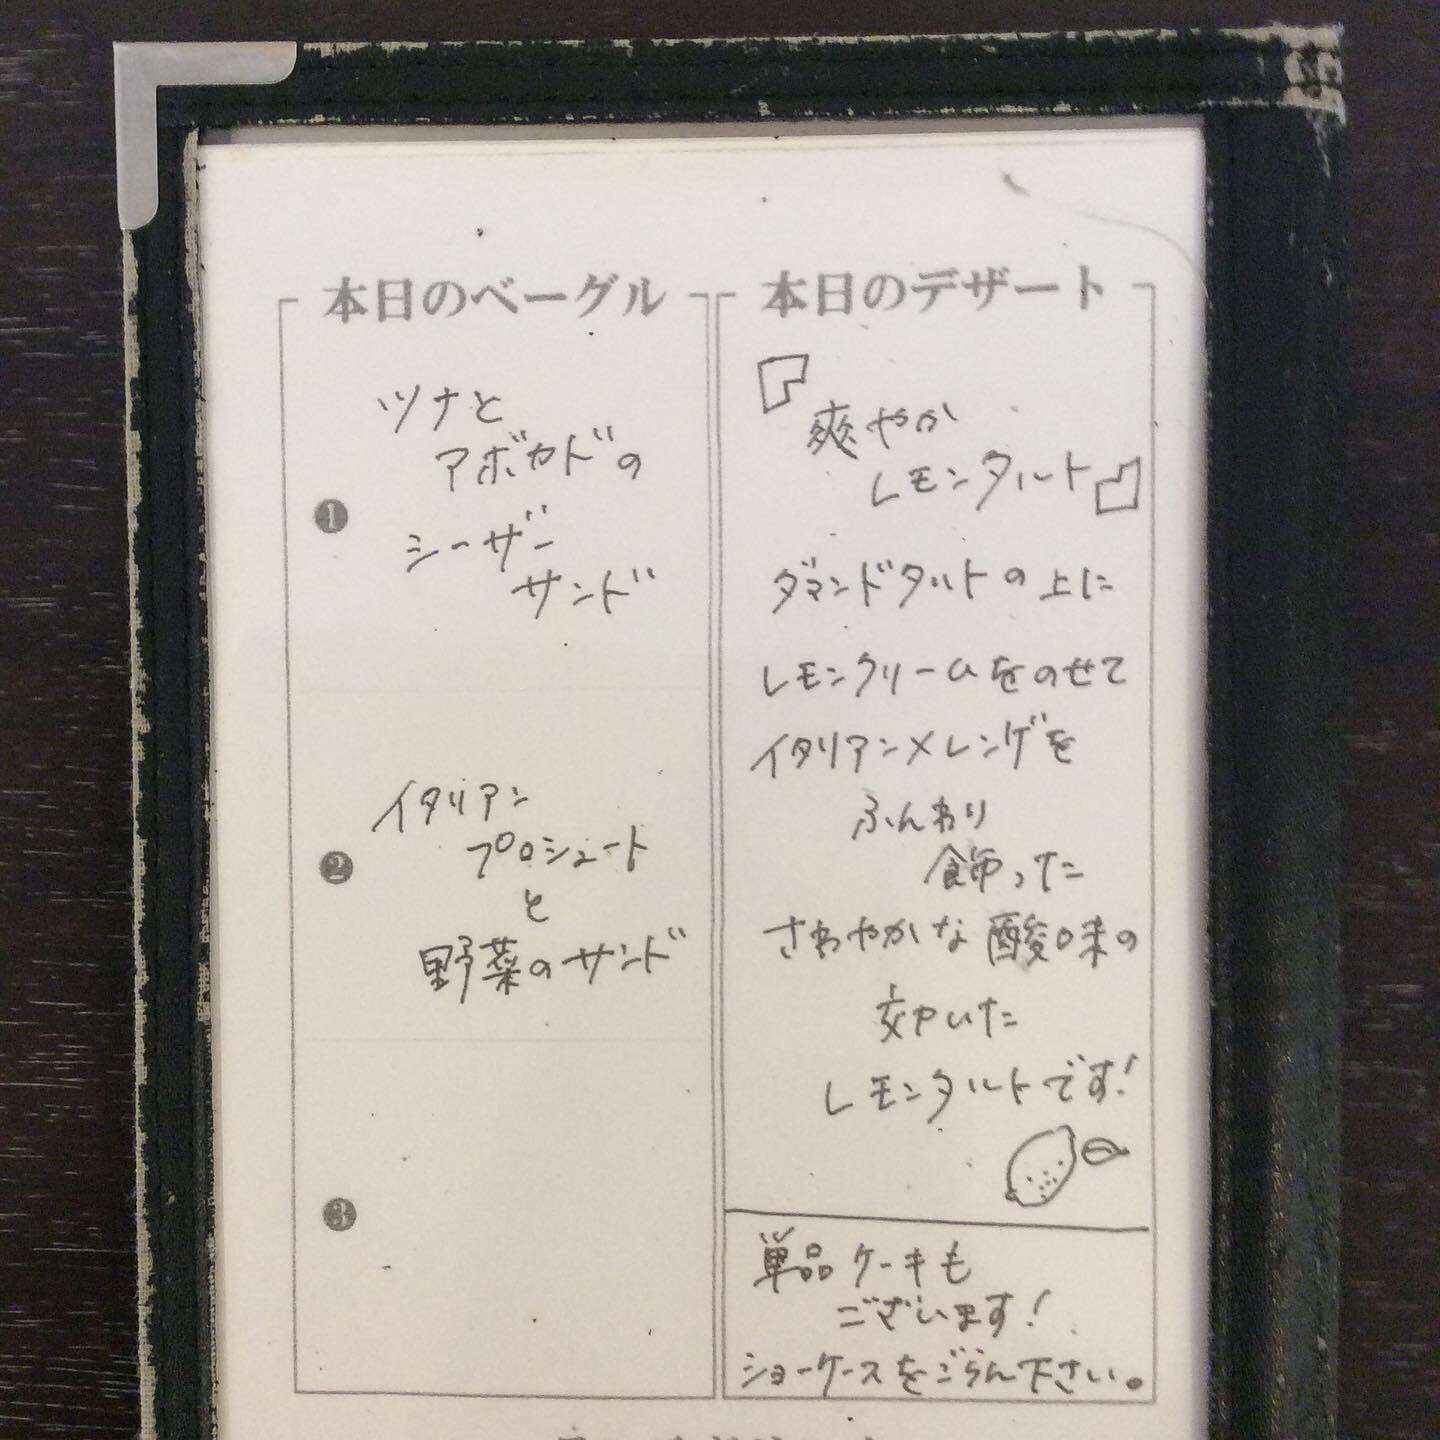 本日のベーグル
❶
ツナと
アボカドの
シーザー
サンド
❷
イタリアン
プロシュート
と
野菜のサンド
❸
本日のデザート
『爽やか
レモンタルト』
ダマンドタルトの上に
レモンクリームをのせて
イタリアンメレンゲを
ふんわり
飾った
さわやかな酸味の
効いた
レモンタルトです!
単品ケーキも
ございます!
ショーケースをごらん下さい。